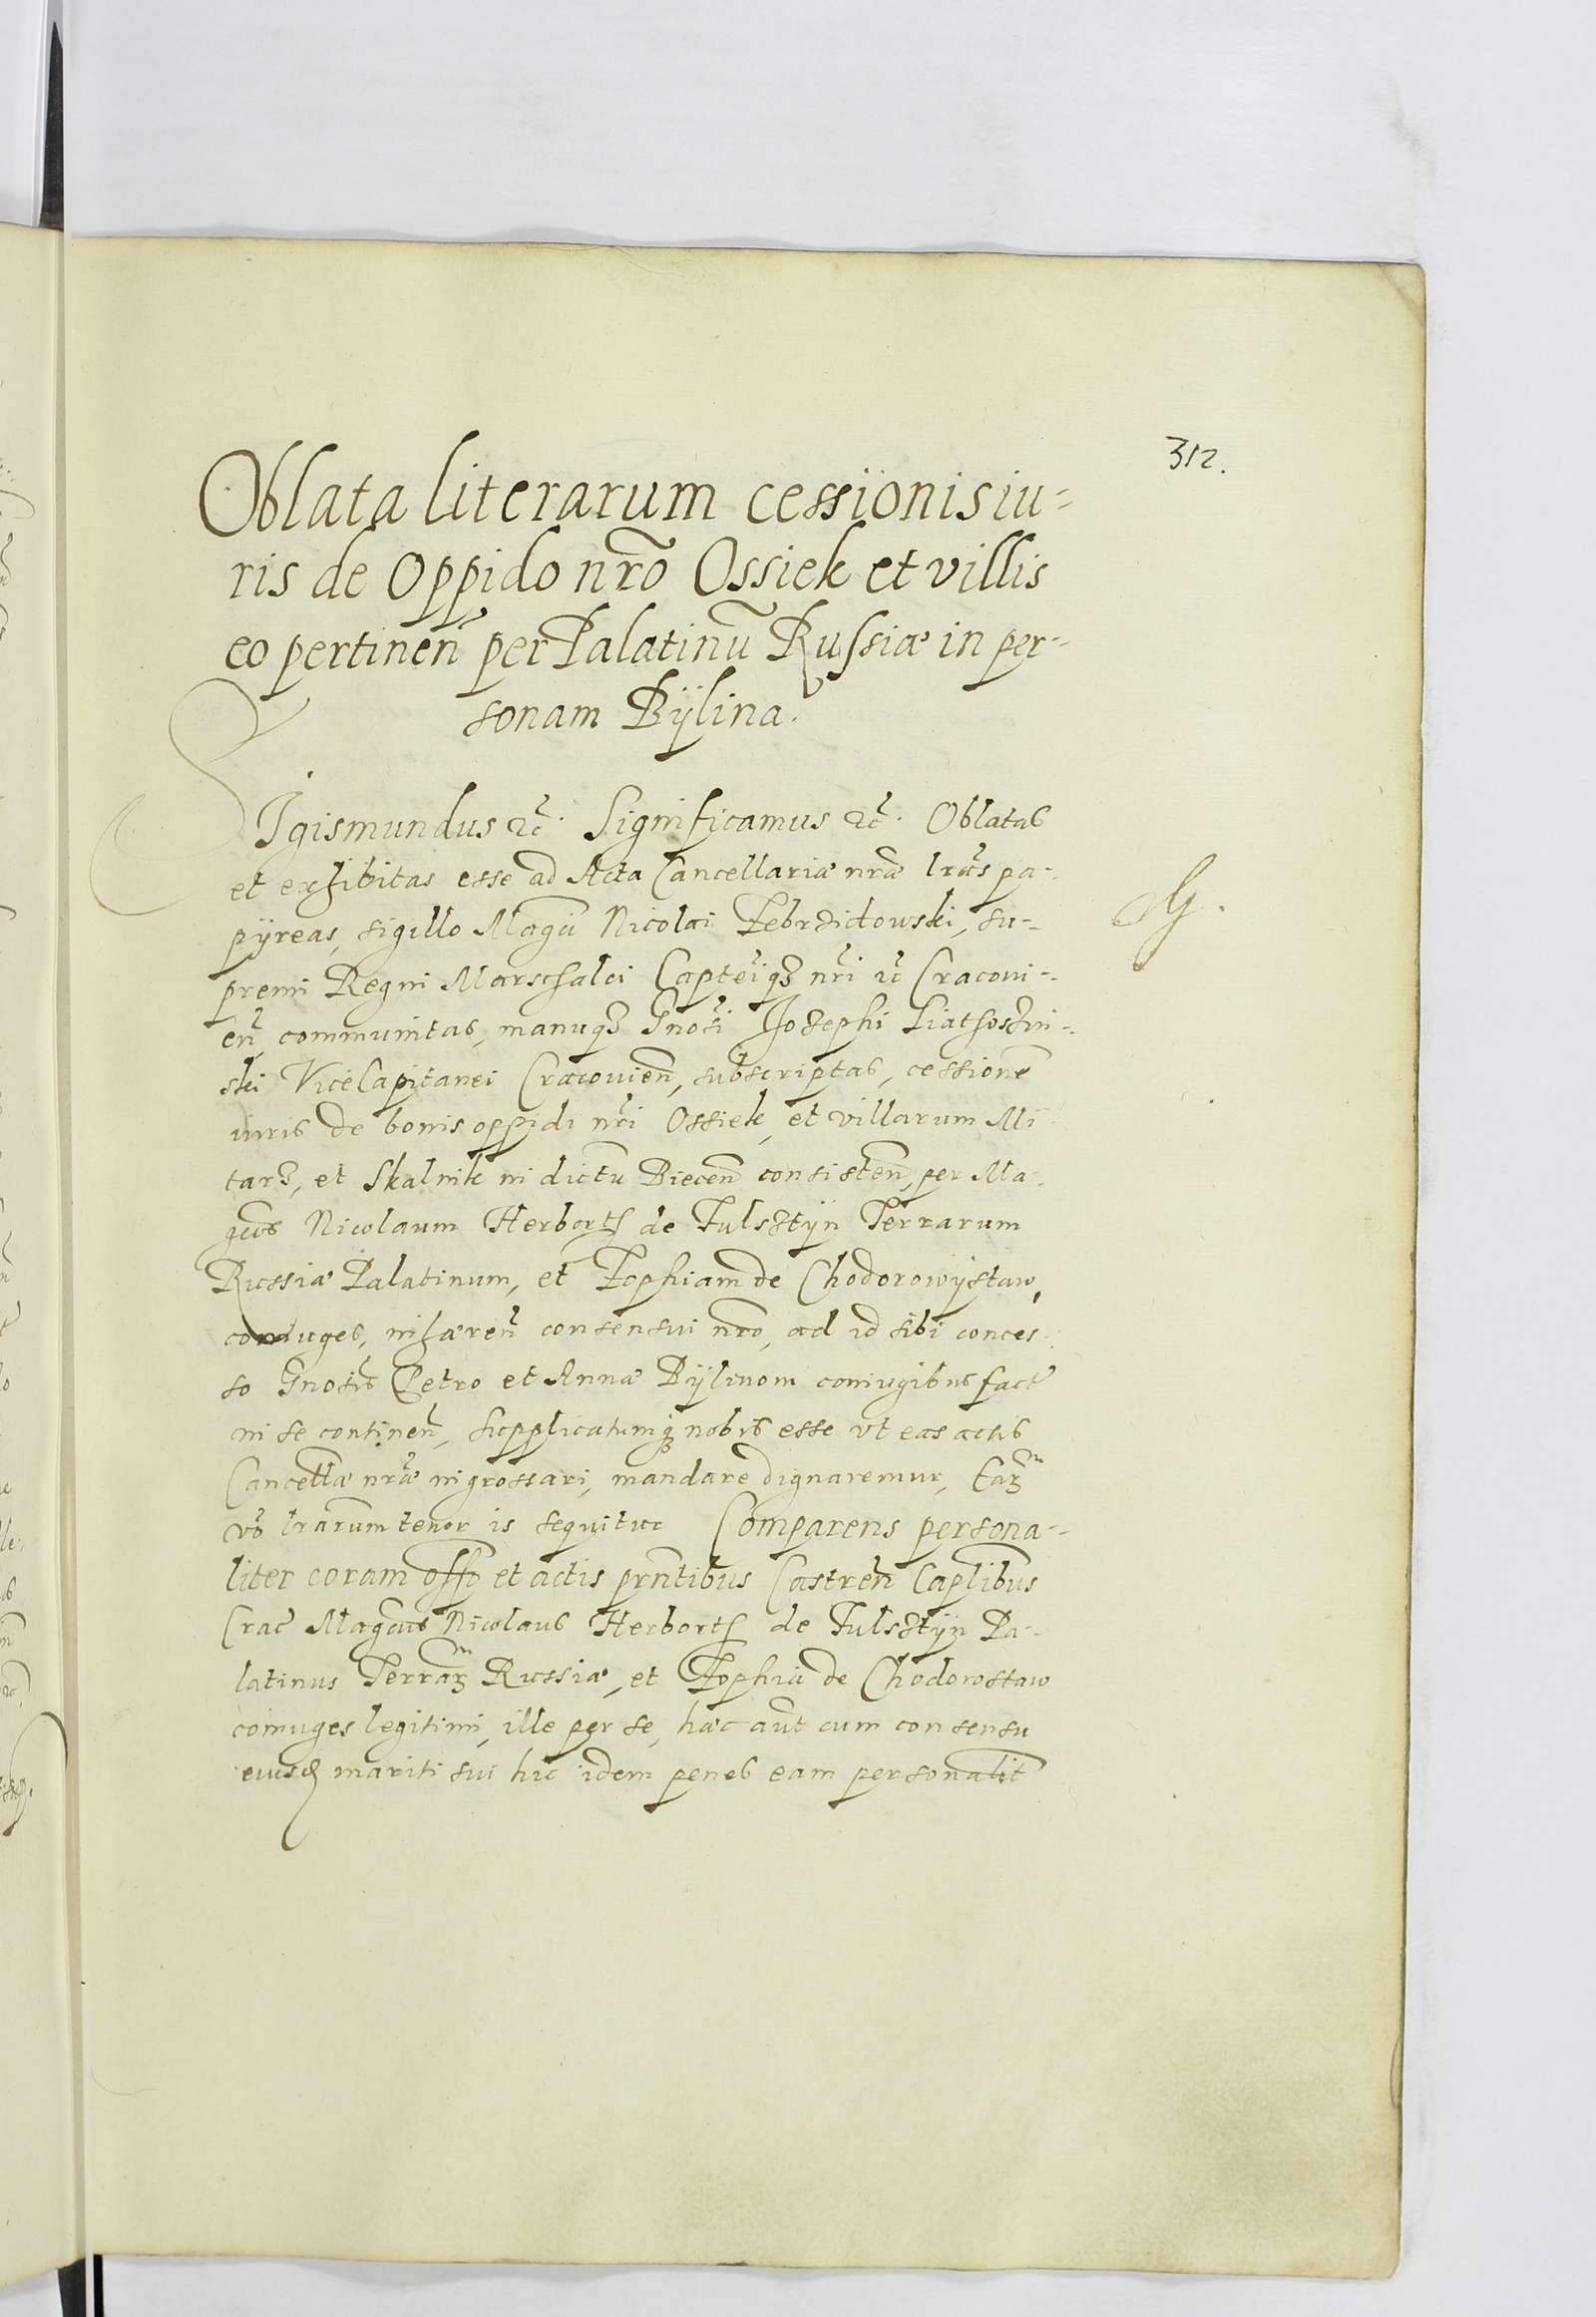 312.
Oblata literarum cessionis iu-
ris de Oppido nr̃o Ossiek et villis
eo pertineñ per Palatinũ Russiæ in per-
sonam Bÿlina.
Sigismundus ꝛc̃. Significamus ꝛc̃. Oblatas
et exhibitas esse ad Acta Cancellariæ nr̃æ lr̃as pa-
pÿreas, sigillo Magci Nicolai Zebrzidowski, su-
premi Regni Marschalci Capteiqꝫ nr̃i ꝛc̃ Cracoui-
eñ communitas, manuqꝫ Gnosi Iosephi
ski ViceCapitanei Cracovieñ, subscriptas, cessionẽ
iuris de bonis oppidi nr̃i Ossiek, et villarum Mi
tarz, et Skalnik in dictu Biecen̄ consisteñ, per Ma-
gcos Nicolaum Herborth de Fulsztÿn Terrarum
Russiæ Palatinum, et Zophiam de Chodorowÿstaw,
coniuges, inhæreñ consensui nr̃o, ad id sibi conces-
so Gnosis Petro et Annæ Bÿlinom coniugibus fact̃
in se contineñ, supplicatumqꝫ nobis esse vt eas actis
Cancellæ nr̃æ ingrossari, mandare dignaremur, Earꝫ
võ lr̃arum tenor is sequitur Comparens persona-
liter coram offo et actis prñtibus Castreñ Caplibus
Crac̃ Magcus Nicolaus Herborth de Fulsztÿn Pa-
latinus Terrarꝫ Russiæ, et Zophia de Chodorostaw
coniuges legitimi, ille per se, hæc aut̃ cum consensu
eiusd mariti sui hic idem penes eam personalit̃